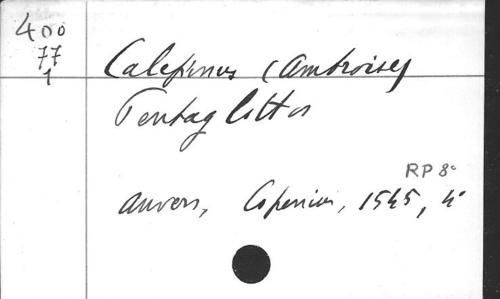 400
77
1
Calepinus (Ambroise)
Pentaglottos
RP 8°
Anvers, Copenius, 1545, 4°